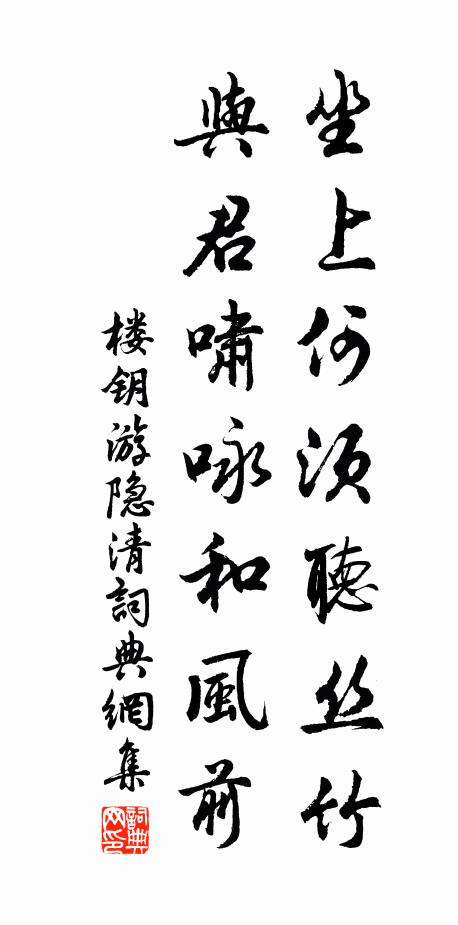 坐上何须聽丝竹
與君嘯咏和風前
楼钥游隐清詞典網集
詞典网印